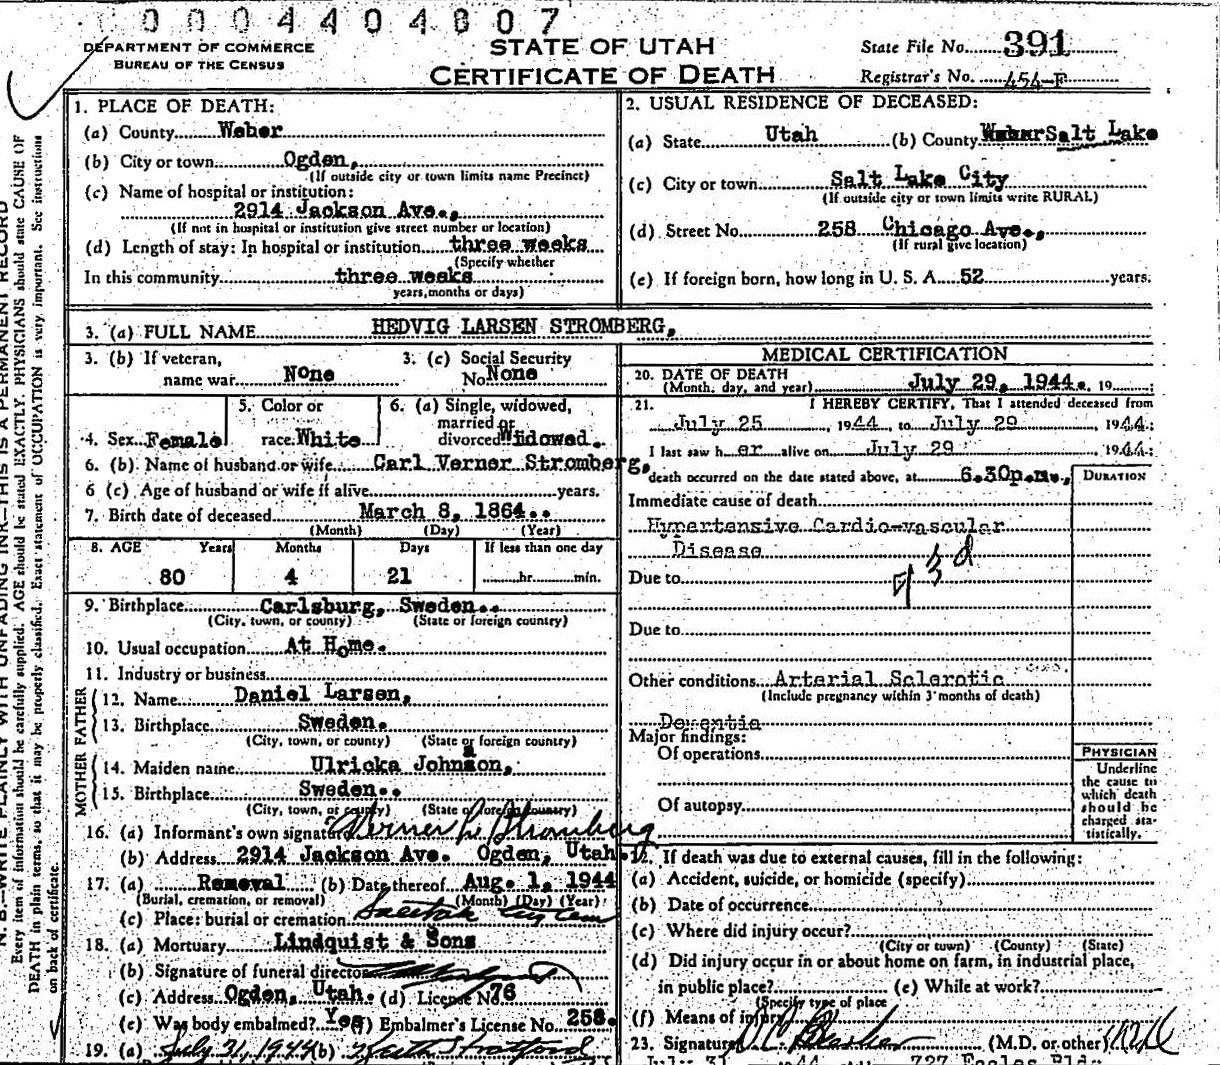 0004404807
DEPARTMENT OF COMMERCE
BUREAU OF THE CENSUS
STATE OF UTAH
CERTIFICATE OF DEATH
State File No. 391
Registrar's No. 454-F
N. B.—WRITE PLAINLY WITH UNFADING INK—THIS IS A PERMANENT RECORD
Every item of information should be carefully supplied. AGE should be stated EXACTLY. PHYSICIANS should state CAUSE OF
DEATH in plain terms, so that it may be properly classified. Exact statement of OCCUPATION is very important. See instructions
on back of certificate.
1. PLACE OF DEATH:
(a) County Weber
(b) City or town Ogden,
(If outside city or town limits name Precinct)
(c) Name of hospital or institution:
2914 Jackson Ave.,
(If not in hospital or institution give street number or location)
(d) Length of stay: In hospital or institution three weeks
(Specify whether
In this community three weeks
years, months or days)
2. USUAL RESIDENCE OF DECEASED:
(a) State Utah (b) County Weber Salt Lake
(c) City or town Salt Lake City
(If outside city or town limits write RURAL)
(d) Street No. 258 Chicago Ave.,
(If rural give location)
(e) If foreign born, how long in U. S. A. 52 years.
3. (a) FULL NAME HEDVIG LARSEN STROMBERG,
3. (b) If veteran,
name war None
3. (c) Social Security
No. None
4. Sex Female
5. Color or
race White
6. (a) Single, widowed,
married or
divorced Widowed.
6. (b) Name of husband or wife Carl Verner Stromberg,
6 (c) Age of husband or wife if alive years.
7. Birth date of deceased March 8, 1864..
(Month) (Day) (Year)
8. AGE Years Months Days If less than one day
80 4 21 hr. min.
9. Birthplace Carlsburg, Sweden..
(City, town, or county) (State or foreign country)
10. Usual occupation At Home.
11. Industry or business
FATHER
12. Name Daniel Larsen,
13. Birthplace Sweden.
(City, town, or county) (State or foreign country)
MOTHER
14. Maiden name Ulricka Johnson,
a
15. Birthplace Sweden..
(City, town, or county) (State or foreign country)
16. (a) Informant's own signature Verner L. Stromberg
(b) Address 2914 Jackson Ave. Ogden, Utah.
17. (a) Removal (b) Date thereof Aug. 1, 1944
(Burial, cremation, or removal) (Month) (Day) (Year)
(c) Place: burial or cremation
18. (a) Mortuary Lindquist & Sons
(b) Signature of funeral director
(c) Address Ogden, Utah. (d) License No. 76
(e) Was body embalmed? Yes (f) Embalmer's License No. 258.
19. (a) July 31, 1944 (b) Keith Stratford
MEDICAL CERTIFICATION
20. DATE OF DEATH
(Month, day, and year) July 29, 1944. 19 ;
21. I HEREBY CERTIFY, That I attended deceased from
July 25, 1944, to July 29, 1944;
I last saw her alive on July 29, 1944;
death occurred on the date stated above, at 6.30p.m.,
DURATION
Immediate cause of death
Hypertensive Cardio-vascular
Disease
Due to
Due to
Other conditions Arterial Sclerotic
(Include pregnancy within 3 months of death)
Dementia
Major findings:
Of operations
Of autopsy
PHYSICIAN
Underline
the cause to
which death
should be
charged sta-
tistically.
22. If death was due to external causes, fill in the following:
(a) Accident, suicide, or homicide (specify)
(b) Date of occurrence
(c) Where did injury occur?
(City or town) (County) (State)
(d) Did injury occur in or about home on farm, in industrial place,
in public place? (e) While at work?
(Specify type of place
(f) Means of injury
23. Signature (M.D. or other)
July 31 44 727 Eccles Bldg